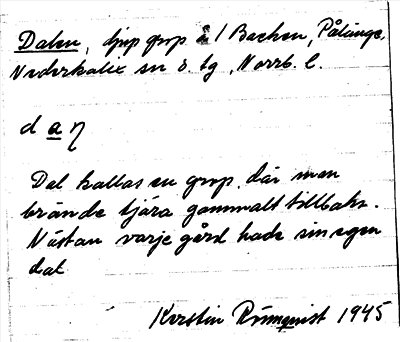 Dalen, djup grop i Backen, Pålänge,
Nederkalix sn o. tg, Norrb. l.
d a ŋ
Dal kallas en grop, där man
brände tjära gammalt tillbaka.
Nästan varje gård hade sin egen
dal
Kerstin Rönnquist 1945